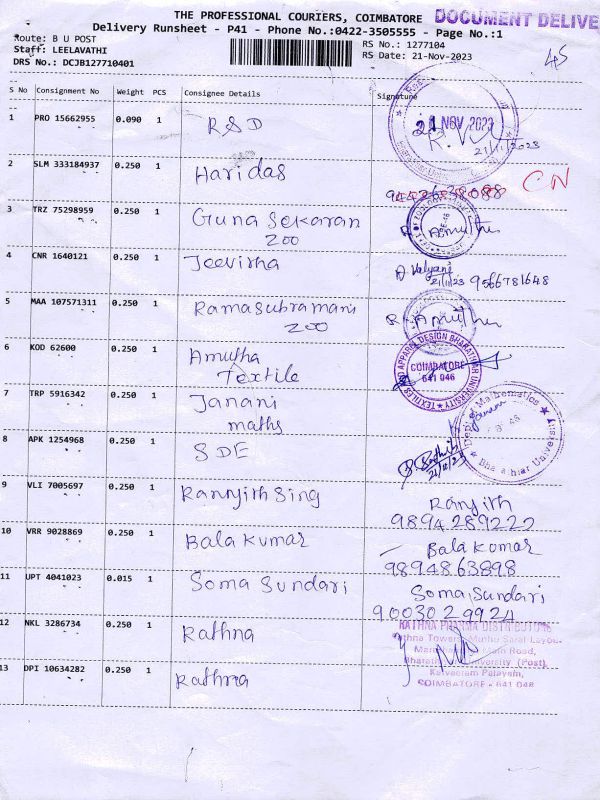 THE PROFESSIONAL COURIERS, COIMBATORE DOCUMENT DELIVE
Delivery Runsheet - P41 - Phone No.:0422-3505555 - Page No.:1
Route: B U POST RS No.: 1277104
Staff: LEELAVATHI RS Date: 21-Nov-2023
DRS No.: DCJB127710401 45
S No Consignment No Weight PCS Consignee Details Signature
1 PRO 15662955 0.090 1 RSD 21 NOV 2023
21/11/2023
2 SLM 333184937 0.250 1 Haridas CN
3 TRZ 75298959 0.250 1 Gunasekaran
200
4 CNR 1640121 0.250 1 Jeevitha
21/11/23 9566781648
5 MAA 107571311 0.250 1 Ramasubramani
200
6 KOD 62600 0.250 1 Amutha
Textile
TEXTILES AND APPAREL DESIGN BHARATHIAR UNIVERSITY
COIMBATORE
641 046
7 TRP 5916342 0.250 1 Janani
maths
Dept of Mathematics
Bharathiar University
8 APK 1254968 0.250 1 SDE
21/11/23
9 VLI 7005697 0.250 1 Ranjith Sing Ranjith
9894289222
10 VRR 9028869 0.250 1 Bala Kumar Bala Kumar
9894863898
11 UPT 4041023 0.015 1 Soma Sundari Soma Sundari
9003029924
12 NKL 3286734 0.250 1 Rathna RATHNA PHARMA DISTRIBUTORS
Main Road,
University (Post),
Kalveeram Palayam,
COIMBATORE - 641 046
13 DPI 10634282 0.250 1 Rathna